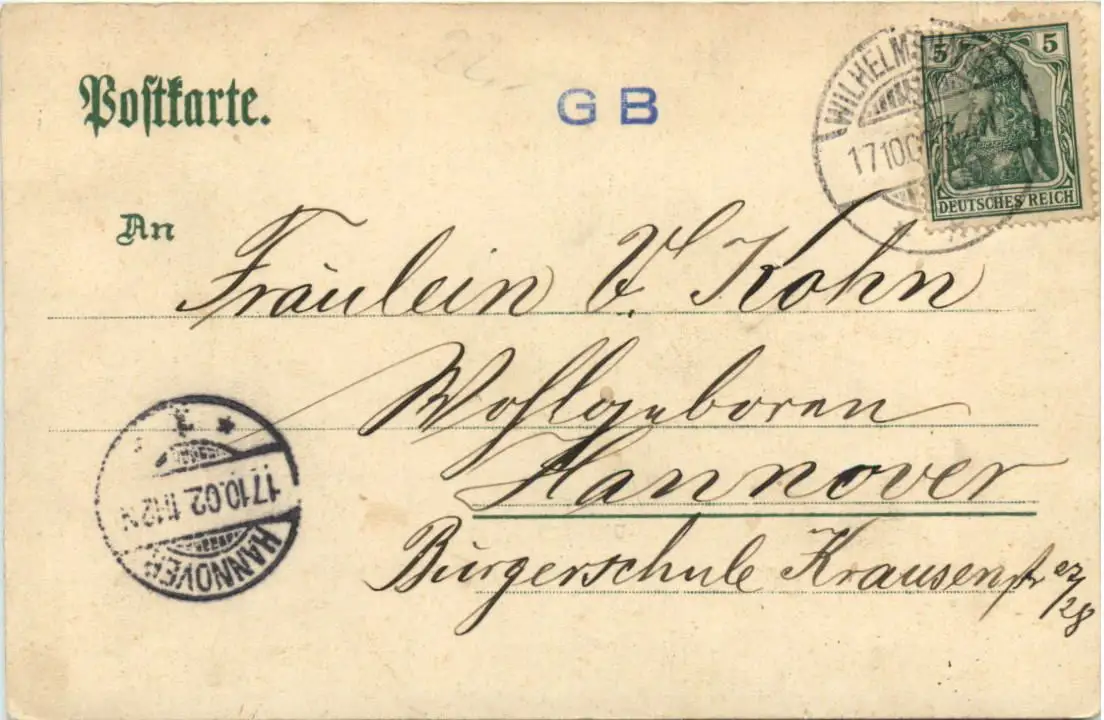 Postkarte.
G B
5 5
DEUTSCHES REICH
17.10.02
An
Fräulein V. Kohn
Wohlgeboren
Hannover
Bürgerschule Krausenstr 27/28
17.10.02. 11-12 N
HANNOVER